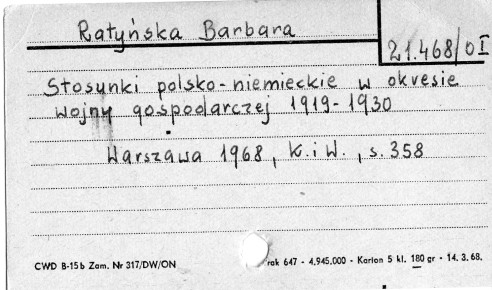 Ratyńska Barbara
21.468/OI
Stosunki polsko-niemieckie w okresie
wojny gospodarczej 1919-1930
Warszawa 1968, K.i W., s. 358
CWD B-15b Zam. Nr 317/DW/ON
rak 647 - 4.945.000 - Karton 5 kl. 180 gr - 14. 3. 68.